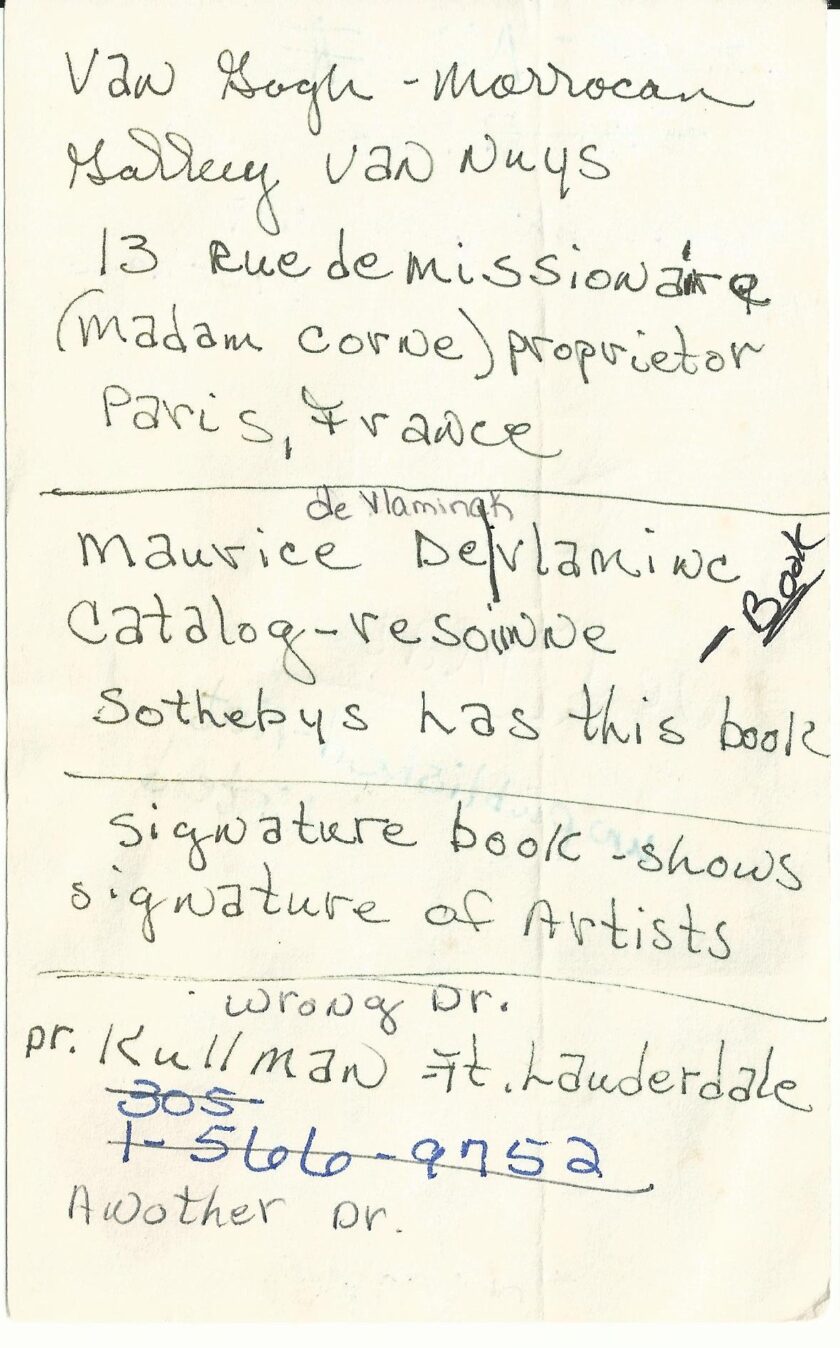 Van Gogh - Morrocan
Gallery Van Nuys
13 Rue de missionaire
(Madam Corne) proprietor
Paris, France
de Vlamingk
Maurice De/Vlaminc
- Book
Catalog - resoinne
Sothebys has this book
Signature book - shows
signature of Artists
Wrong Dr.
Dr. Kullman Ft. Lauderdale
305
1-566-9752
Another Dr.